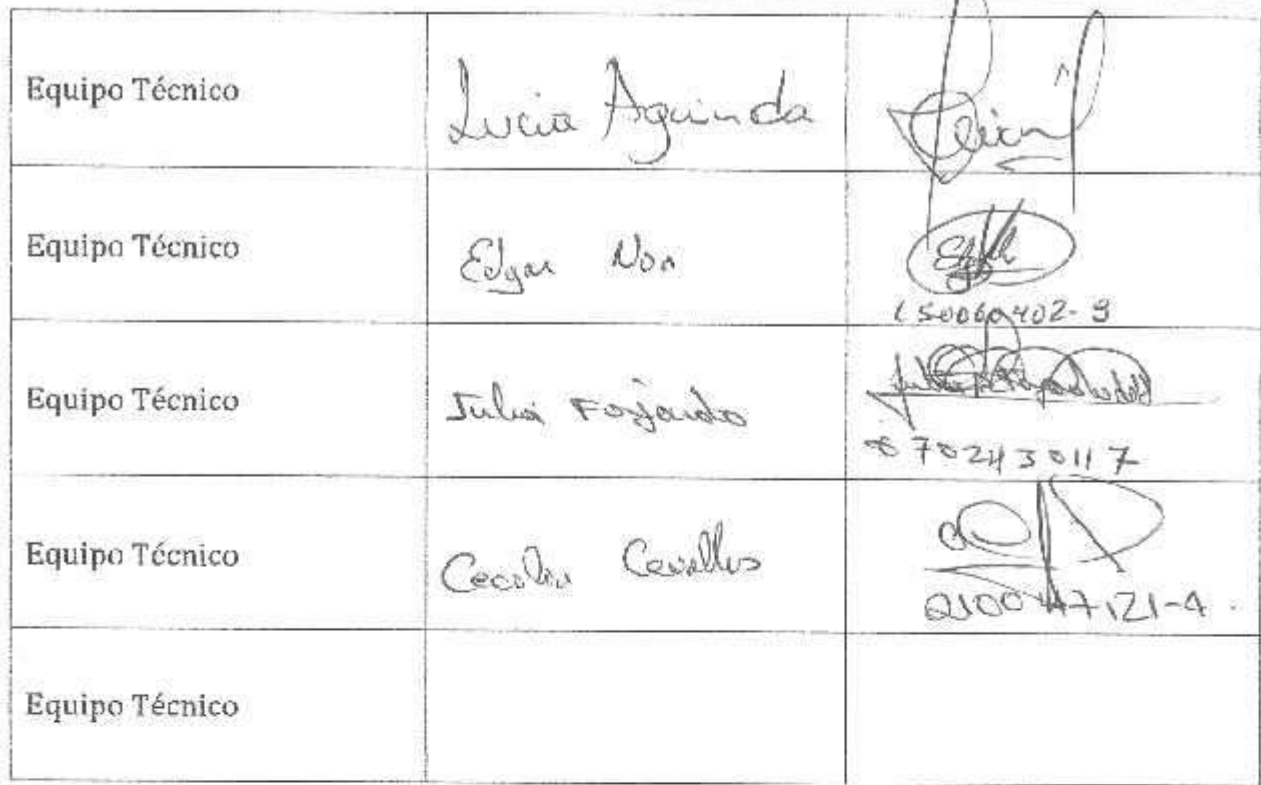 Equipo Técnico
Lucia Aguinda
Equipo Técnico
Edgar Non
150060402-9
Equipo Técnico
Julia Fajardo
0702430117
Equipo Técnico
Cecilia Cevallos
Equipo Técnico